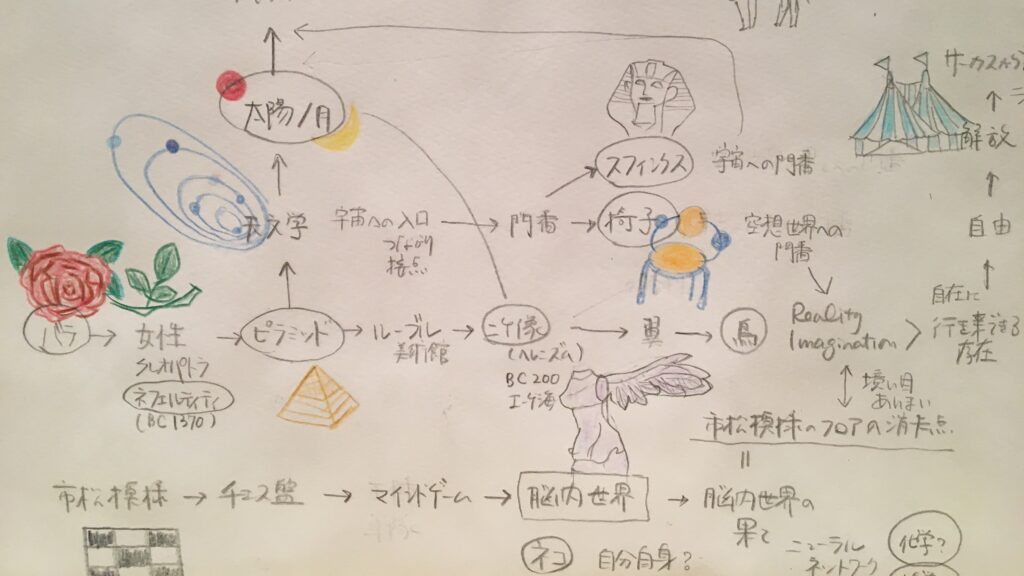 サーカスから
太陽/月
解放
スフィンクス
宇宙への門番
天文学
宇宙への入口
つながり
接点
門番
椅子
空想世界への
門番
自由
バラ
女性
クレオパトラ
ネフェルティティ
(BC1370)
ピラミッド
ルーブル
美術館
ニケ像
(ヘレニズム)
BC200
エーゲ海
翼
鳥
Reality
Imagination
自在に
行き来できる
存在
境い目
あいまい
市松模様のフロアの消失点
市松模様
チェス盤
マインドゲーム
脳内世界
脳内世界の
果て
ネコ
自分自身?
ニューラル
ネットワーク
化学?